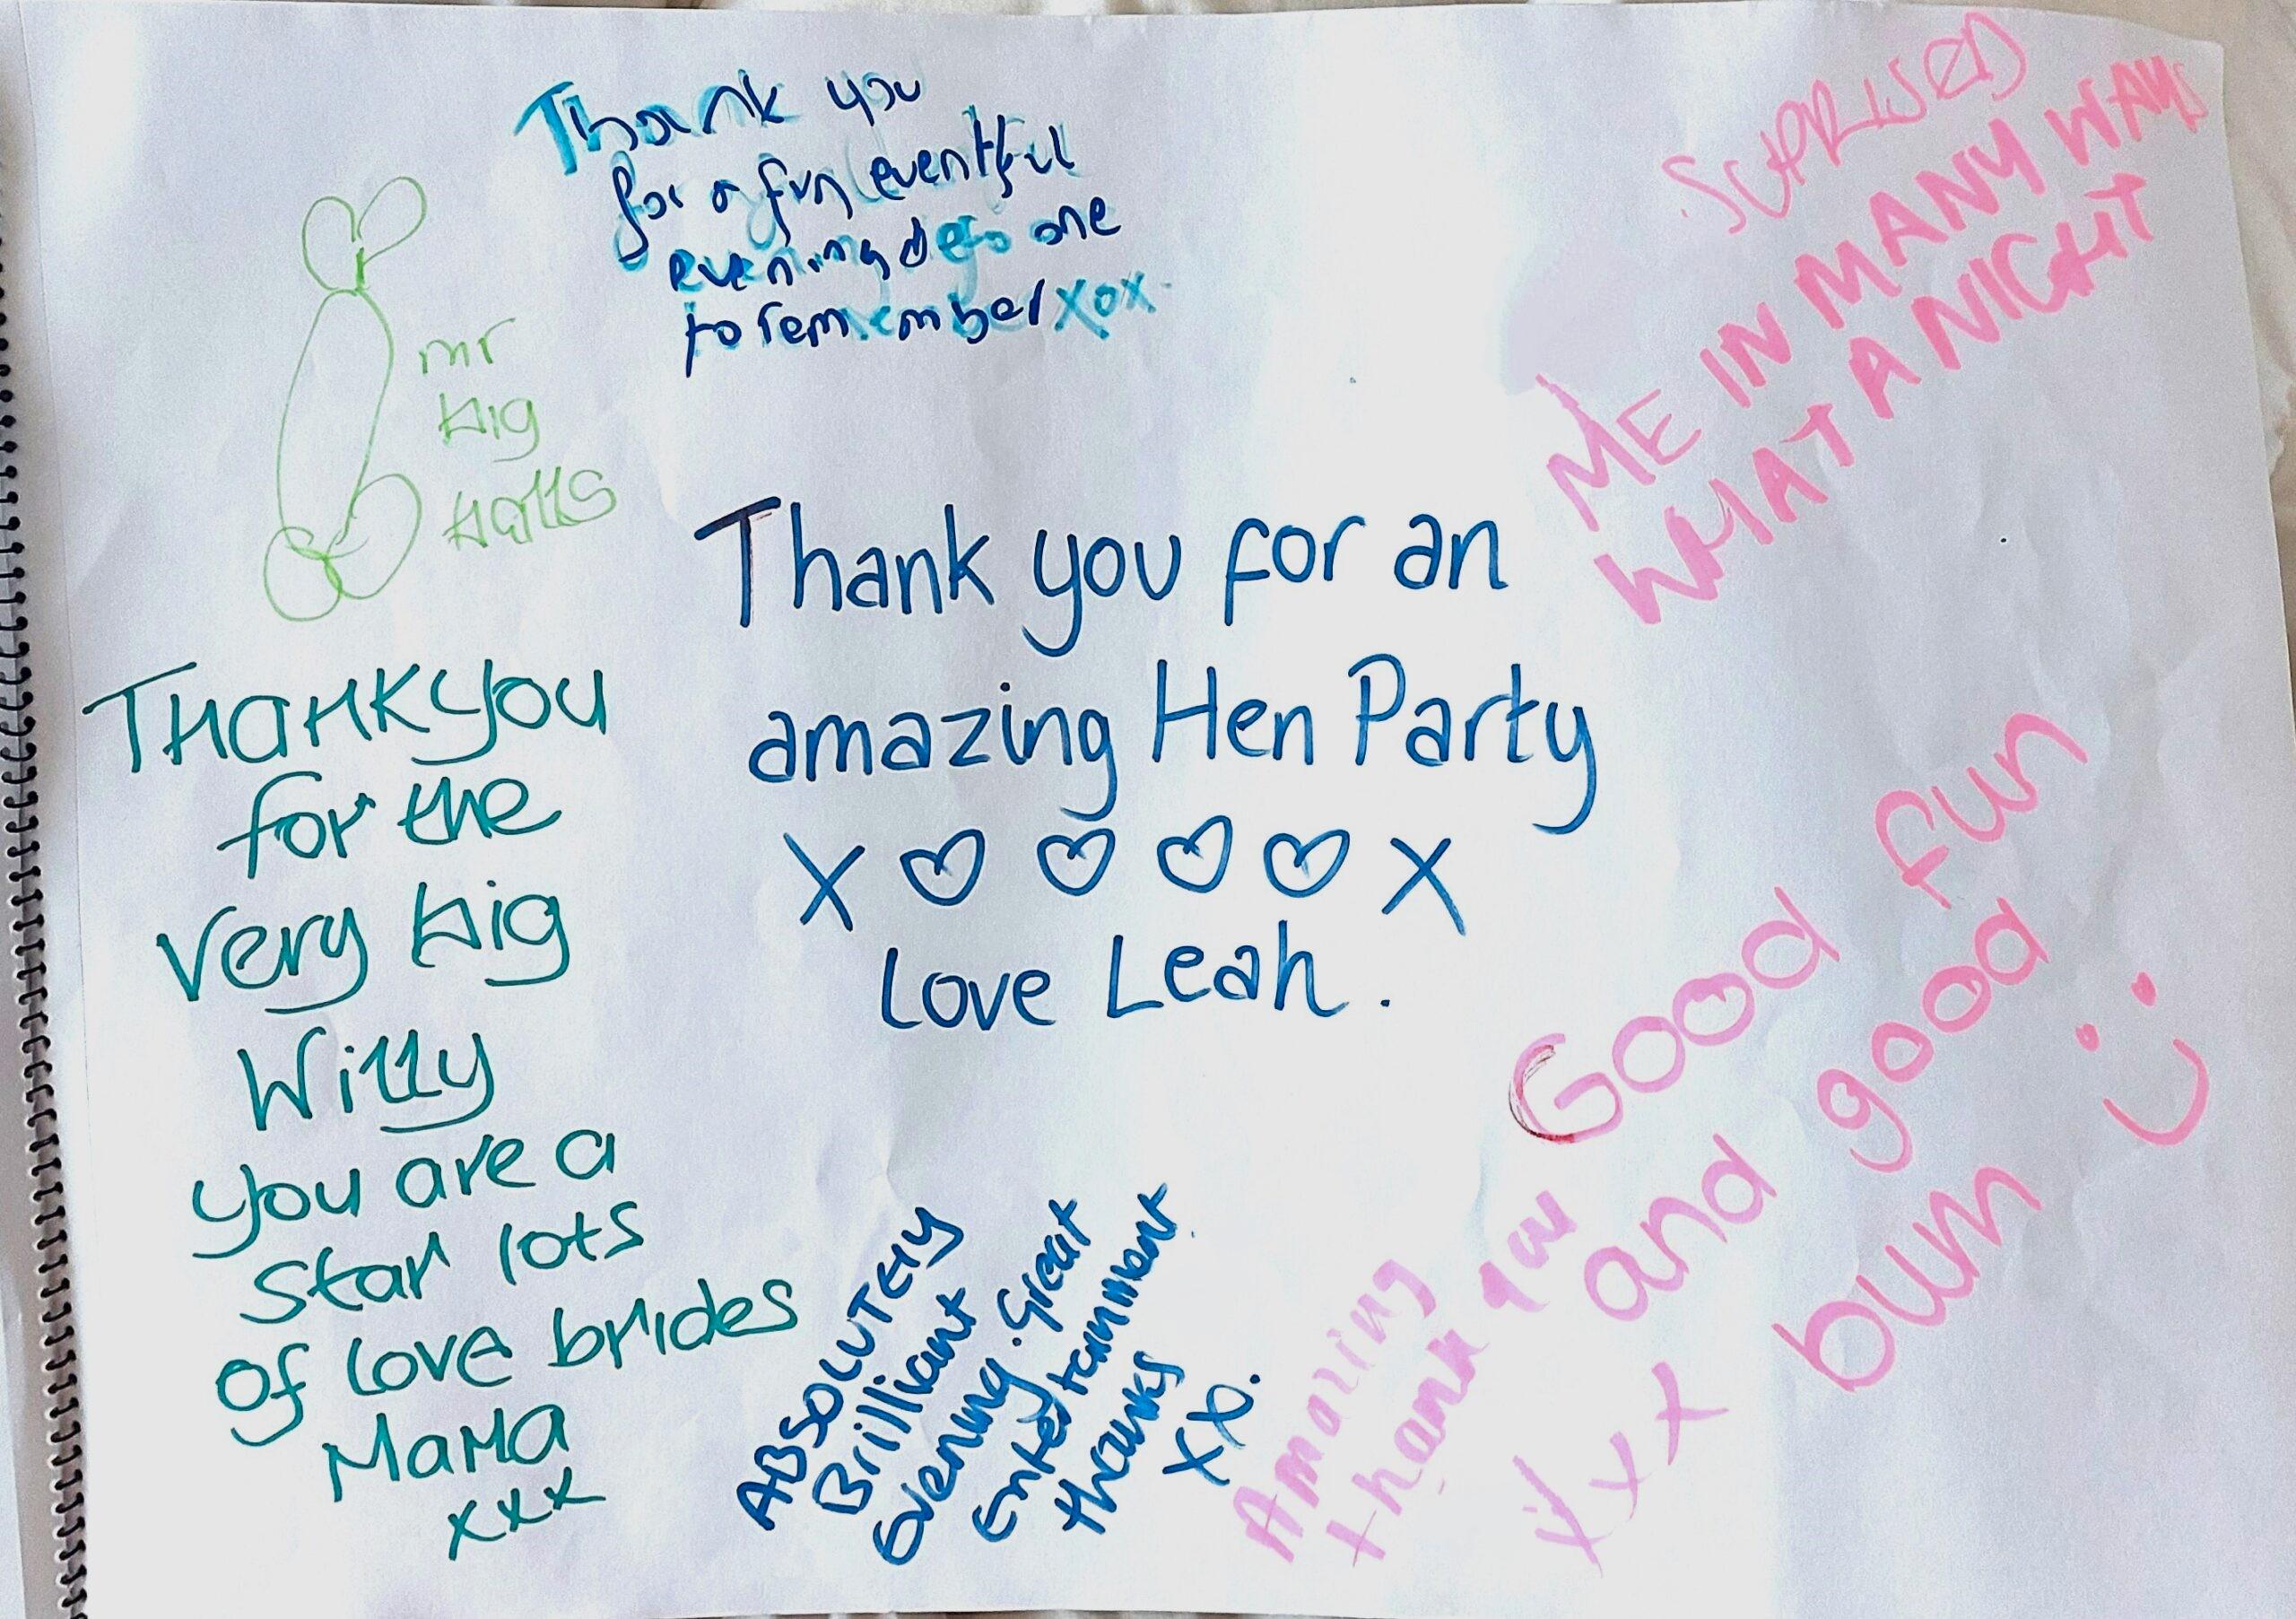 Thank you
for a fun eventful
evening defo one
to remember xox.
mr
big
balls
SUPRISED
ME IN MANY WAYS
WHAT A NIGHT
Thank you for an
amazing Hen Party
X ♡ ♡ ♡ ♡ X
Love Leah.
THANKYOU
for the
very big
Willy
you are a
star lots
of love brides
MAMA
xxx
ABSOLUTELY
Brilliant
evening. Great
entertainment
thanks
XX.
Amazing
thank you
xxx
Good fun
and good
bum :)